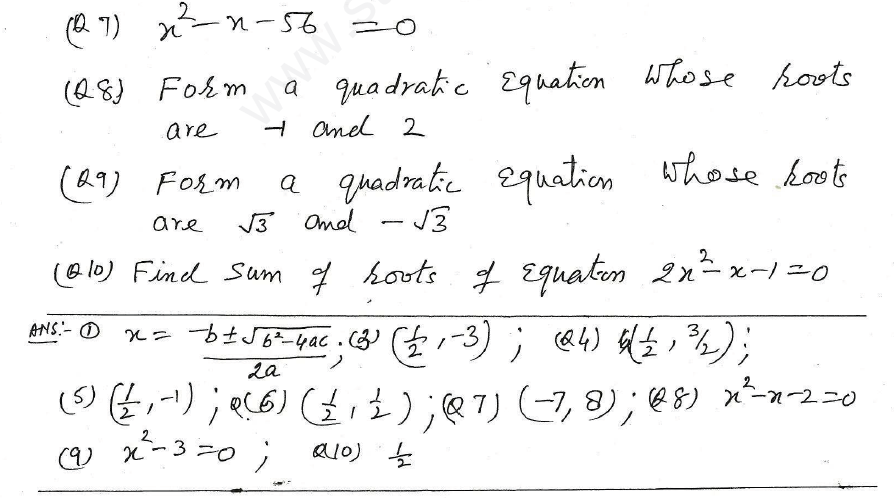 (Q7) x² - x - 56 = 0
(Q8) Form a quadratic Equation Whose roots
are -1 and 2
(Q9) Form a quadratic Equation Whose roots
are √3 and - √3
(Q10) Find Sum of roots of Equation 2x² - x - 1 = 0
ANS:- ① x = -b ± √b²-4ac / 2a ; (3) (1/2, -3) ; (Q4) (1/2, 3/2) ;
(5) (1/2, -1) ; Q(6) (1/2, 1/2) ; (Q7) (-7, 8) ; (Q8) x² - x - 2 = 0
(9) x² - 3 = 0 ; Q10) 1/2